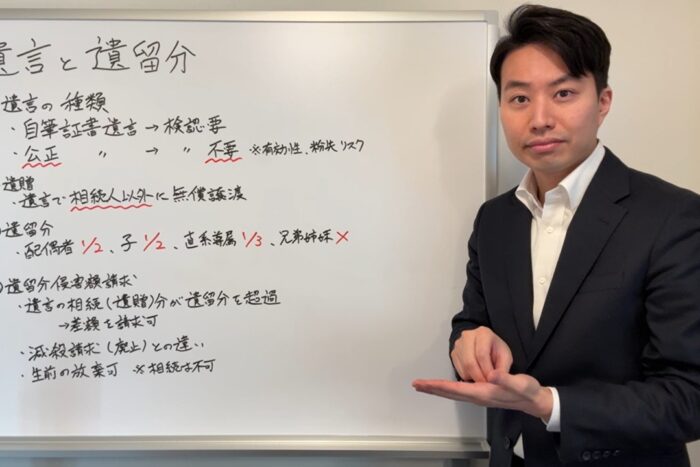 遺言と遺留分
遺言の種類
・自筆証書遺言→検認要
・公正 〃 → 〃 不要 ※有効性、紛失リスク
遺贈
・遺言で相続人以外に無償譲渡
遺留分
・配偶者 1/2、子 1/2、直系尊属 1/3、兄弟姉妹 ×
遺留分侵害額請求
・遺言の相続(遺贈)分が遺留分を超過
→差額を請求可
・減殺請求(廃止)との違い
・生前の放棄可 ※相続は不可